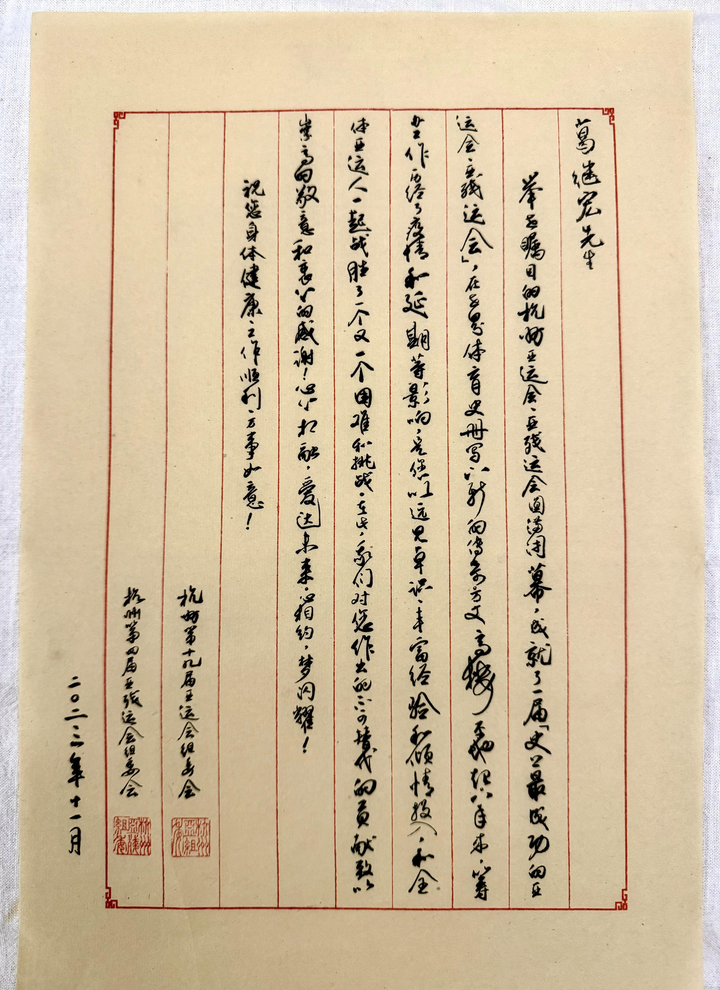 葛继宏先生
举世瞩目的杭州亚运会、亚残运会圆满闭幕，成就了一届「史上最成功的亚
运会、亚残运会」，在世界体育史册写下新的传奇方文
筹办工作经历了疫情和延期等影响，是您以远见卓识、丰富经验和倾情投入，和全
体亚运人一起战胜了一个又一个困难和挑战，在此，我们对您作出的不可替代的贡献致以
崇高的敬意和衷心的感谢！心心相融，爱达未来，心相约，梦闪耀！
祝您身体健康、工作顺利、万事如意！
杭州第十九届亚运会组委会
杭州第四届亚残运会组委会
二〇二三年十一月